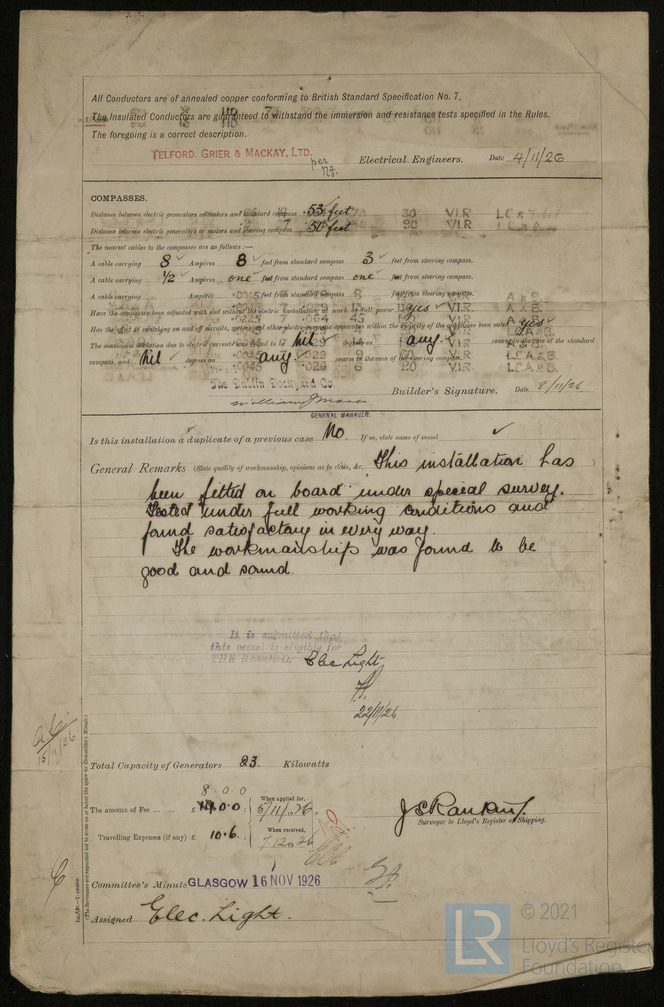 All Conductors are of annealed copper conforming to British Standard Specification No. 7.
The Insulated Conductors are guaranteed to withstand the immersion and resistance tests specified in the Rules.
The foregoing is a correct description.
TELFORD, GRIER & MACKAY, LTD. per Electrical Engineers. Date 4/11/26
COMPASSES.
Distance between electric generators or motors and standard compass 53 feet
Distance between electric generators or motors and steering compass 50 feet
The nearest cables to the compasses are as follows:—
A cable carrying 8 Ampères 8 feet from standard compass 3 feet from steering compass.
A cable carrying ½ Ampères one feet from standard compass one feet from steering compass.
A cable carrying Ampères feet from standard compass feet from steering compass.
Have the compasses been adjusted with and without the electric installation at work at full power yes
Has the effect of switching on and off circuits, motors and other electro-magnetic apparatus within the vicinity of the compasses been noted yes
The maximum deviation due to electric currents was found to be nil degrees on any course in the case of the standard
compass, and nil degrees on any course in the case of the steering compass.
The Dublin Dockyard Co.
Builder's Signature. Date 8/11/26
GENERAL MANAGER.
Is this installation a duplicate of a previous case No. If so, state name of vessel
General Remarks (State quality of workmanship, opinions as to class, &c. This installation has
been fitted on board under special survey.
Tested under full working conditions and
found satisfactory in every way.
The workmanship was found to be
good and sound.
It is submitted that
this vessel is eligible for
THE RECORD. Elec Light
22/11/26
15/11/26
Total Capacity of Generators 23 Kilowatts
8 0 0
The amount of Fee ... ... £ When applied for, 5/11/1926.
Travelling Expenses (if any) £ 10.6. When received, 7.12.26
J S Rankin
Surveyor to Lloyd's Register of Shipping.
Committee's Minute GLASGOW 16 NOV 1926
Assigned Elec. Light.
(The Surveyors are requested not to write on or below the space for Committee's Minute.)
LR © 2021
Lloyd's Register
Foundation